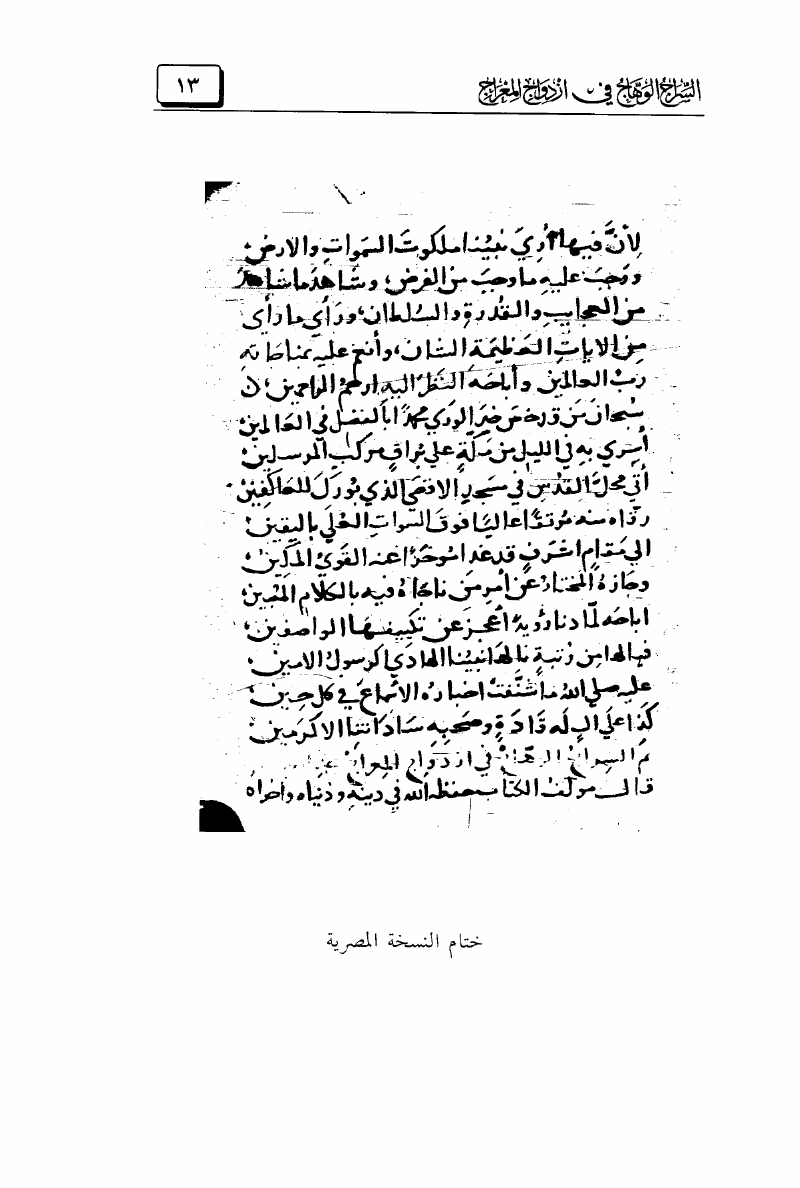 السِّرَاجُ الوَهَّاجُ في ازْدِوَاجِ المِعْرَاجِ
١٣
لأنَّ فيها أُرِيَ نبيُّنا ملكوتَ السَّموات والارض
ووجبَ عليه ما وجبَ من الفرض، وشَاهدَ ما شاهدَ
من العجايب والقدرة والسُلطان، ورَأي ما رأى
مِن الايات العظيمَة الشان، وأنعم عليه بمناجاته
ربُّ العالمين وأباحَه النَظَرَ اليه ارحم الراحمين،
سُبحانَ مَن خيرِ الوَرَي محمَّدًا الفضل في العَالمين
أُسرِي به في الليل من مَكّةٍ علي بُراقٍ مركبِ المرسلين
أتي محلَّ القدس في مسجدِ الاقصَي الذي بُورِكَ للعاكفين
رقاه منه مُرتقًا عاليا فوق السَّموات العُلي باليقين
الي مقامٍ اشرفٍ قد غدا عند القويّ المكين
وجازهُ المختار عن أمرِ مَن ناجَاهُ فيه بالكلام المُبين
اباحَه لمَّا دنا رُؤيةً أعجزَ عن تكييفها الواصفين
فيالها من رُتبةٍ نالها نبيُّنا الهادي الرسولُ الامين
عليه صلي اللهُ ما شنَّفت اخبارُه الأسماعَ في كلِّ حين
كَذَا علَي الٍ لَه قَادَةٍ وصَحبِه سَادَاتنا الاكرَمِين
تم السراج الوهاج في ازدواج المعراج
قال مولف الكتاب حفظه الله في دينه ودنياه واخراه
ختام النسخة المصرية